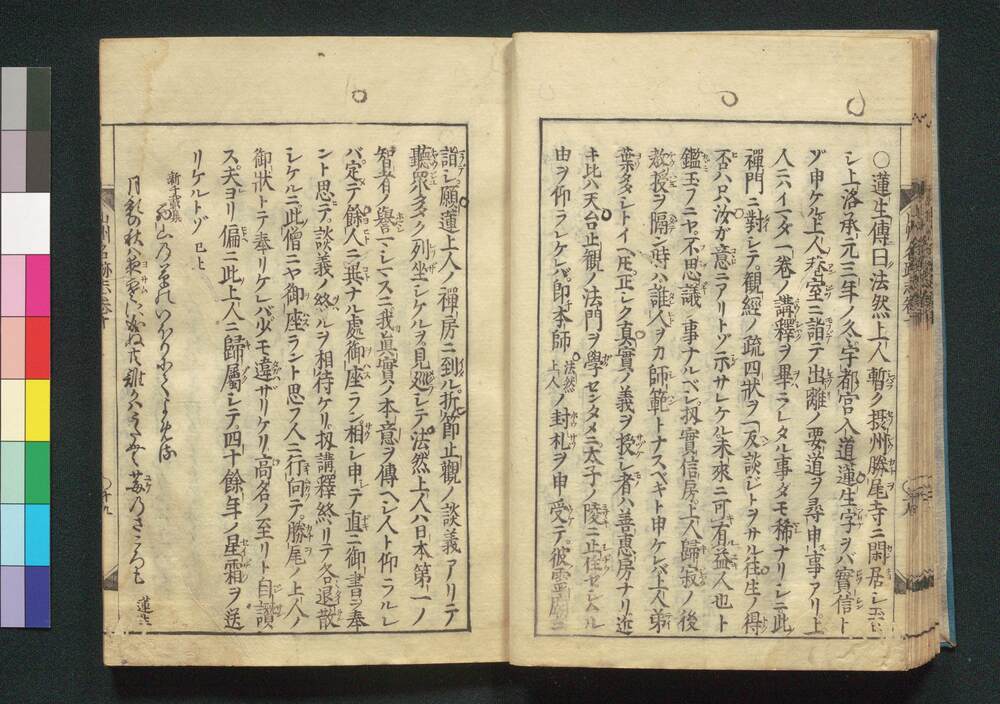 〇蓮生傳曰法然上人暫ク摂州勝尾寺ニ閑居シ玉ヒ
シ上洛承元三年ノ冬宇都宮入道蓮生字ヲバ實信ト
ゾ申ケル上人ノ菴室ニ詣テ出離ノ要道ヲ尋申事アリ上
人ニハイマダ一巻ノ講釋ヲ畢ラレタル事ダモ稀ナリシニ此
禪門ニ對シテ観經ノ疏四狀ヲ一反談ジトヲサル往生ノ得
否ハ只汝ガ意ニアリトゾ示サレケル未來ニ可有益人也ト
鑑玉フニヤ不思議ノ事ナルベシ扨實信房上人歸寂ノ後
教授ヲ隔ン時ハ誰人ヲカ師範トナスベキト申ケレバ上人弟
葉多シトイヘ𪜈正シク真實ノ義ヲ授シ者ハ善恵房ナリ近
キ比ハ天台止観ノ法門ヲ學センタメニ太子ノ陵ニ止住セシムル
由ヲ仰ラレケレバ即本師法然上人ノ封札ヲ申受テ彼霊廟ニ
詣シ願蓮上人ノ禪房ニ到ル折節止觀ノ談義アリテ
聽衆多ク列坐シケルヲ見廻シテ法然上人ハ日本第一ノ
智者ノ譽マシマスニ我真實ノ本意ヲ傳ヘシ人ト仰ラルレ
バ定テ餘人ニ異ナル處御座ラン相シ申テ直ニ御書ヲ奉
ント思テ談義ノ終ルヲ相待ケリ扨講釋終リテ各退散
シケルニ此僧ニヤ御座ラント思フ人ニ行向テ勝尾ノ上人ノ
御狀トテ奉リケレバ少モ違ザリケリ高名ノ至リト自讃
ス夫ヨリ偏ニ此上人ニ歸屬シテ四十餘年ノ星霜ヲ送
リケルトゾ 已上
新千載集
蓮生
山州名跡志巻十